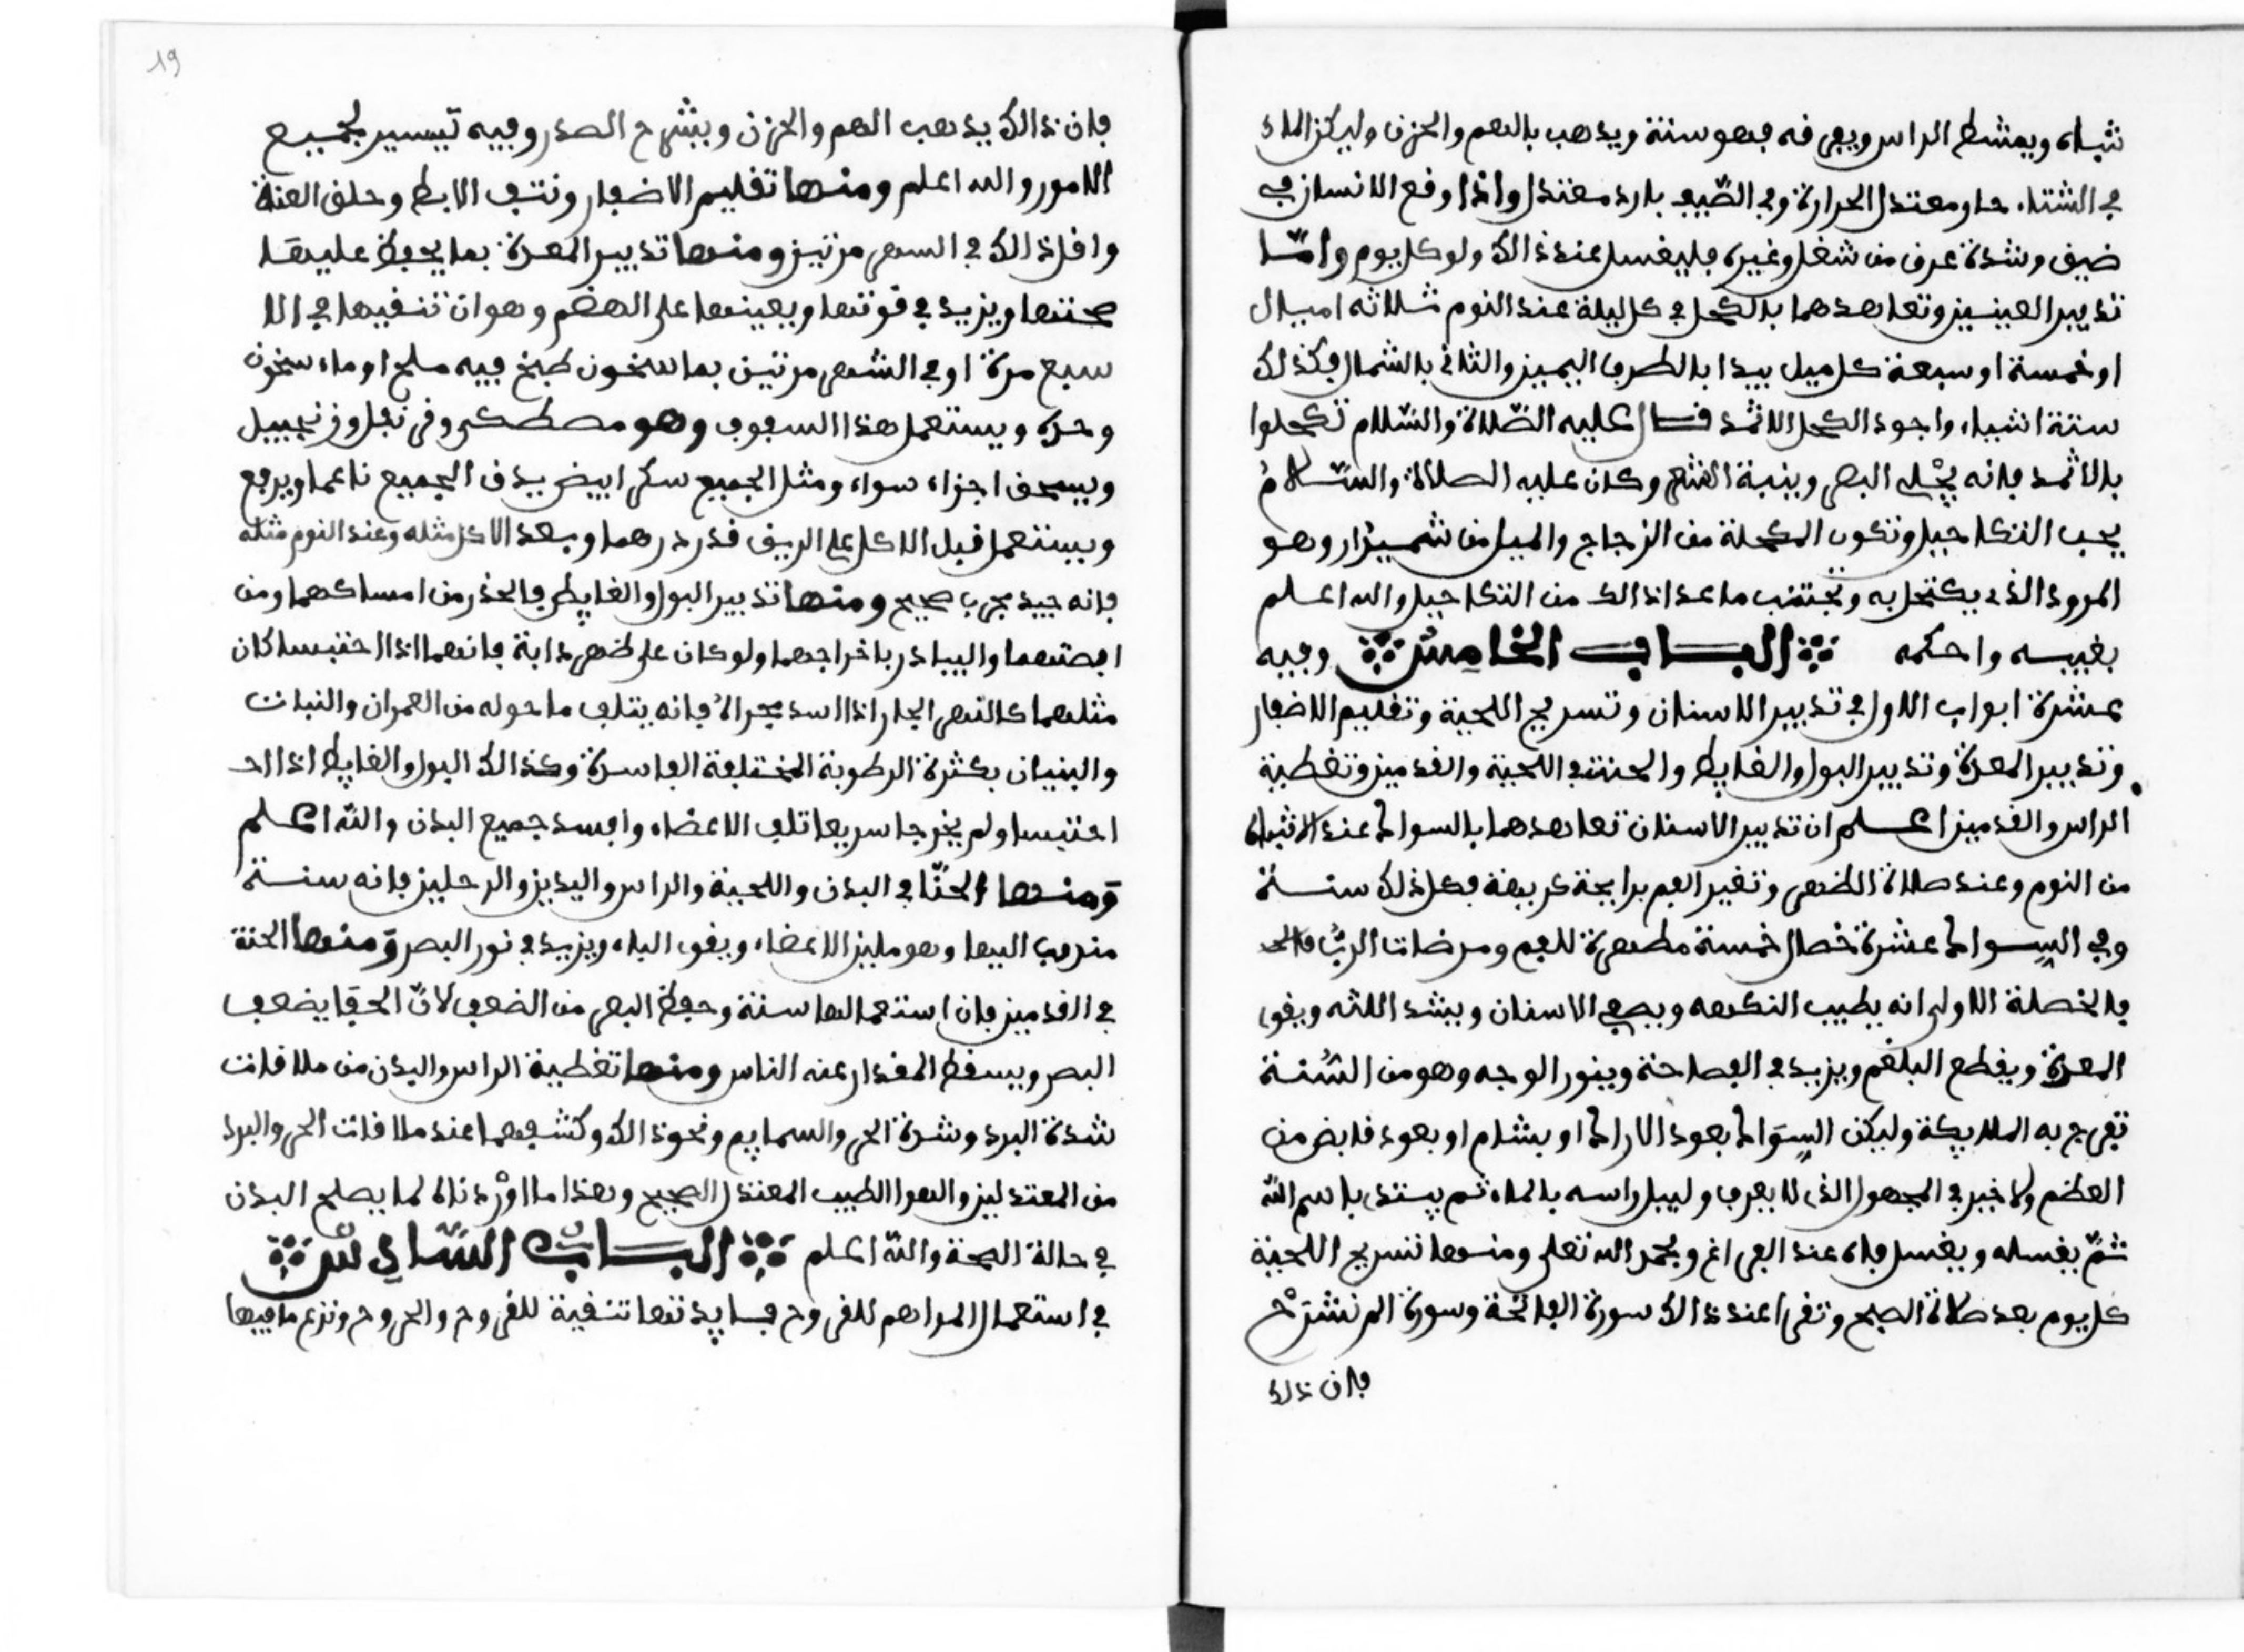 شياه ويمشط الراس ويفرفه فهو سنة ويذهب بالهم والحزن وليكن الماء
في الشتاء حار معتدل الحرارة وفي الصّيف بارد معتدل واذا وقع الانسان في
ضيق وشدة عرق من شغل وغيره فليغسل عند ذالك ولو كل يوم وامّا
تدبير العينين وتعاهدهما بالكحل في كل ليلة عند النوم ثلاثه اميال
او خمسة او سبعة كل ميل يبدا بالطرف اليمين والثاني بالشمال وكذالك
ستة اشياء واجود الكحل الاثمد فال عليه الصّلاة والسّلام تكحلوا
بالاثمد فانه يجْلي البصر وينبة الشعر وكان عليه الصلاة والسّلامُ
يحب التكاحيل وتكون المكحلة من الزجاج والميل من شميزار وهو
المرود الذي يكتحل به ويجتنب ما عدا ذالك من التكاحيل والله اعلم
بغيبه واحكمه الباب الخامِسُ وفيه
عشرة ابواب الاول في تدبير الاسنان وتسريح اللحية وتقليم الاضفار
وتدبير المعدة وتدبير البول والغايط والحنة في اللحية والقدمين وتغطية
الراس والقدمين اعلم ان تدبير الاسنان تعاهدهما بالسواك عند الانتباه
من النوم وعند صلاة الظهر وتغير الفم برايحة كريهة فكل ذلك سنة
وفي السِواك عشرة خصال خمسة مطهرة للفم ومرضات الربّ
فالخصلة الاولى انه يطيب النكهه ويصفي الاسنان ويشد اللثه ويقوي
المعدة ويقطع البلغم ويزيد في الفصاحة وينور الوجه وهو من السُنة
تفرح به الملايكة وليكن السِوَاك بعود الاراك او بشام او بعود قابض من
العظم ولا خير في المجهول الذي لا يعرف وليبل راسه بالماء ثم يبتدي باسم اللّه
ثمّ يغسله ويغسل فاه عند الفراغ ويحمد الله تعلى ومنها تسريح اللحية
كل يوم بعد صلاة الصبح وتقرا عند ذالك سورة الفاتحة وسورة الم نشرَحْ
فان ذلك
19
فان ذالك يذهب الهم والحزن ويشرح الصدر وفيه تيسير لجميع
الامور والله اعلم ومنها تقليم الاضفار ونتف الابط وحلق العنة
واقل ذالك في الشهر مرتين ومنها تدبير المعدة بما يحفظ عليها
صحتها ويزيد في قوتها ويعينها على الهضم وهو ان تنقيها في الا
سبع مرة او في الشهر مرتين بما سخون طبخ فيه ملح او ماء سخون
وحده ويستعمل هذا السفوف وهو مصطكى وقرنفل وزنجبيل
ويسحق اجزاء سواء ومثل الجميع سكر ابيض يدق الجميع ناعما ويرفع
ويستعمل قبل الاكل على الريق قدر درهم وبعد الاكل مثله وعند النوم مثله
فانه جيد مجرب صحيح ومنها تدبير البول والغايط فالحذر من امساكهما ومن
افصتهما والبيادر باخراجهما ولو كان على ظهر دابة فانهما اذا احتبسا كان
مثلهما كالنهر الجار اذا انسد مجراه فانه يتلف ما حوله من العمران والنبات
والبنيان بكثرة الرطوبة المختلفة الفاسدة وكذالك البول والغايط اذا احـ
احتبسا ولم يخرجا سريعا تلف الاعضاء وافسد جميع البدن واللّه اعلم
وَمنها الحنّا في البدن واللحية والراس واليدين والرجلين فانه سنة
مندوب اليها وهو ملين الاعضاء ويقوي الباه ويزيد في نور البصر وَمنها الحنة
في القدمين فان استعمالها سنة وحفظ البصر من الضعف لانّ الحفا يضعف
البصر ويسقط المقدار عند الناس ومنها تغطية الراس والبدن من ملاقات
شدة البرد وشدة الحر والسمايم ونحو ذالك وكشفهما عند ملاقات الحر والبرد
من المعتدلين والهوا الطيب المعتدل الصحيح وهذا ما اوْردناه لما يصلح البدن
في حالة الصحة واللّه اعلم البابُ السَّادِسُ
في استعمال المراهم للقروح فايدتها تنقية للقروح والجروح ونزع ما فيها